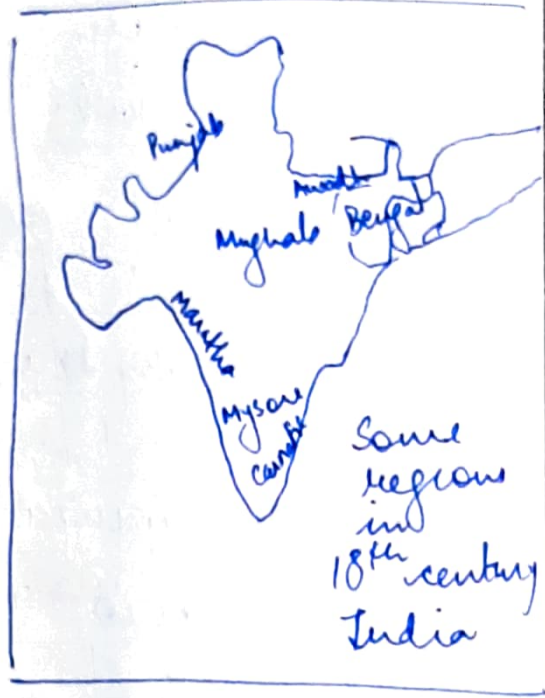 Punjab
Awadh
Bengal
Mughals
Maratha
Mysore
Carnatic
Some
regions
in
18th century
India